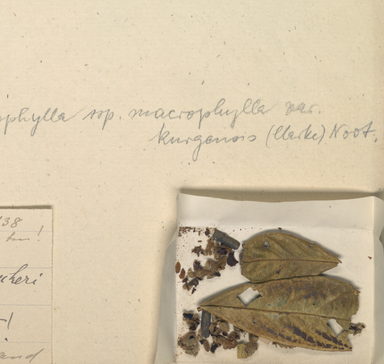 ophylla ssp. macrophylla var.
kurgensis (Clarke) Noot.
38
!
kheri
and